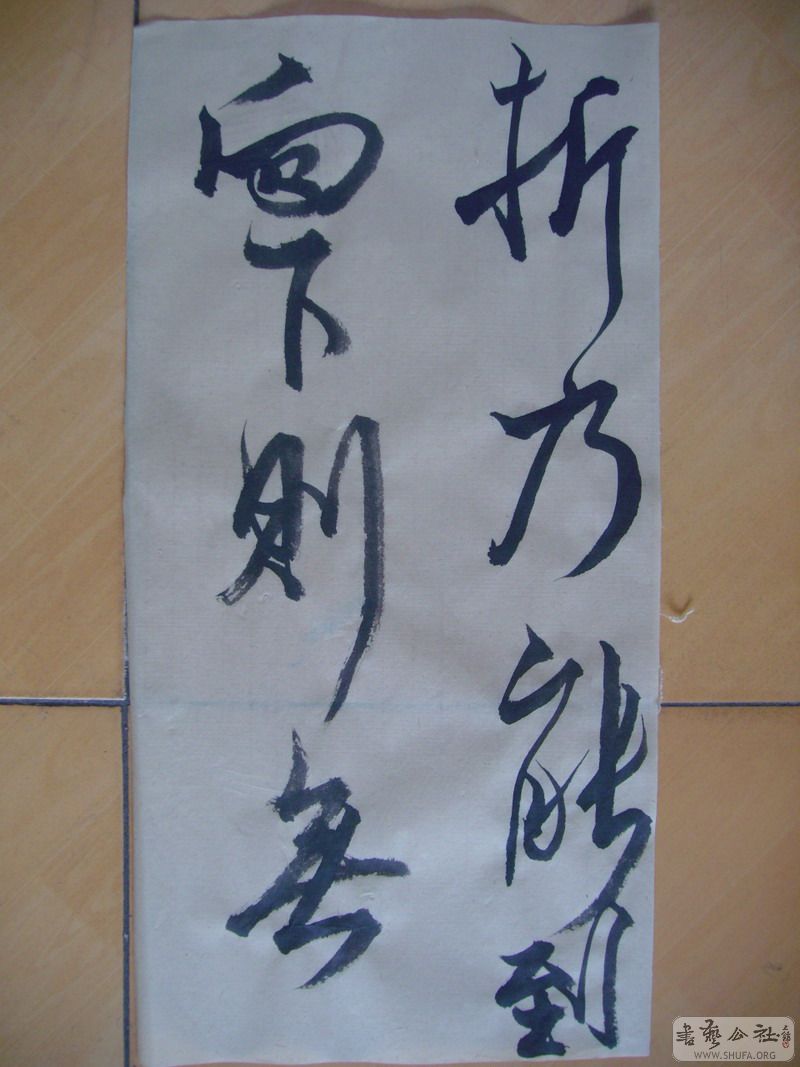 折乃能到
向下則無
書藝公社
WWW.SHUFA.ORG